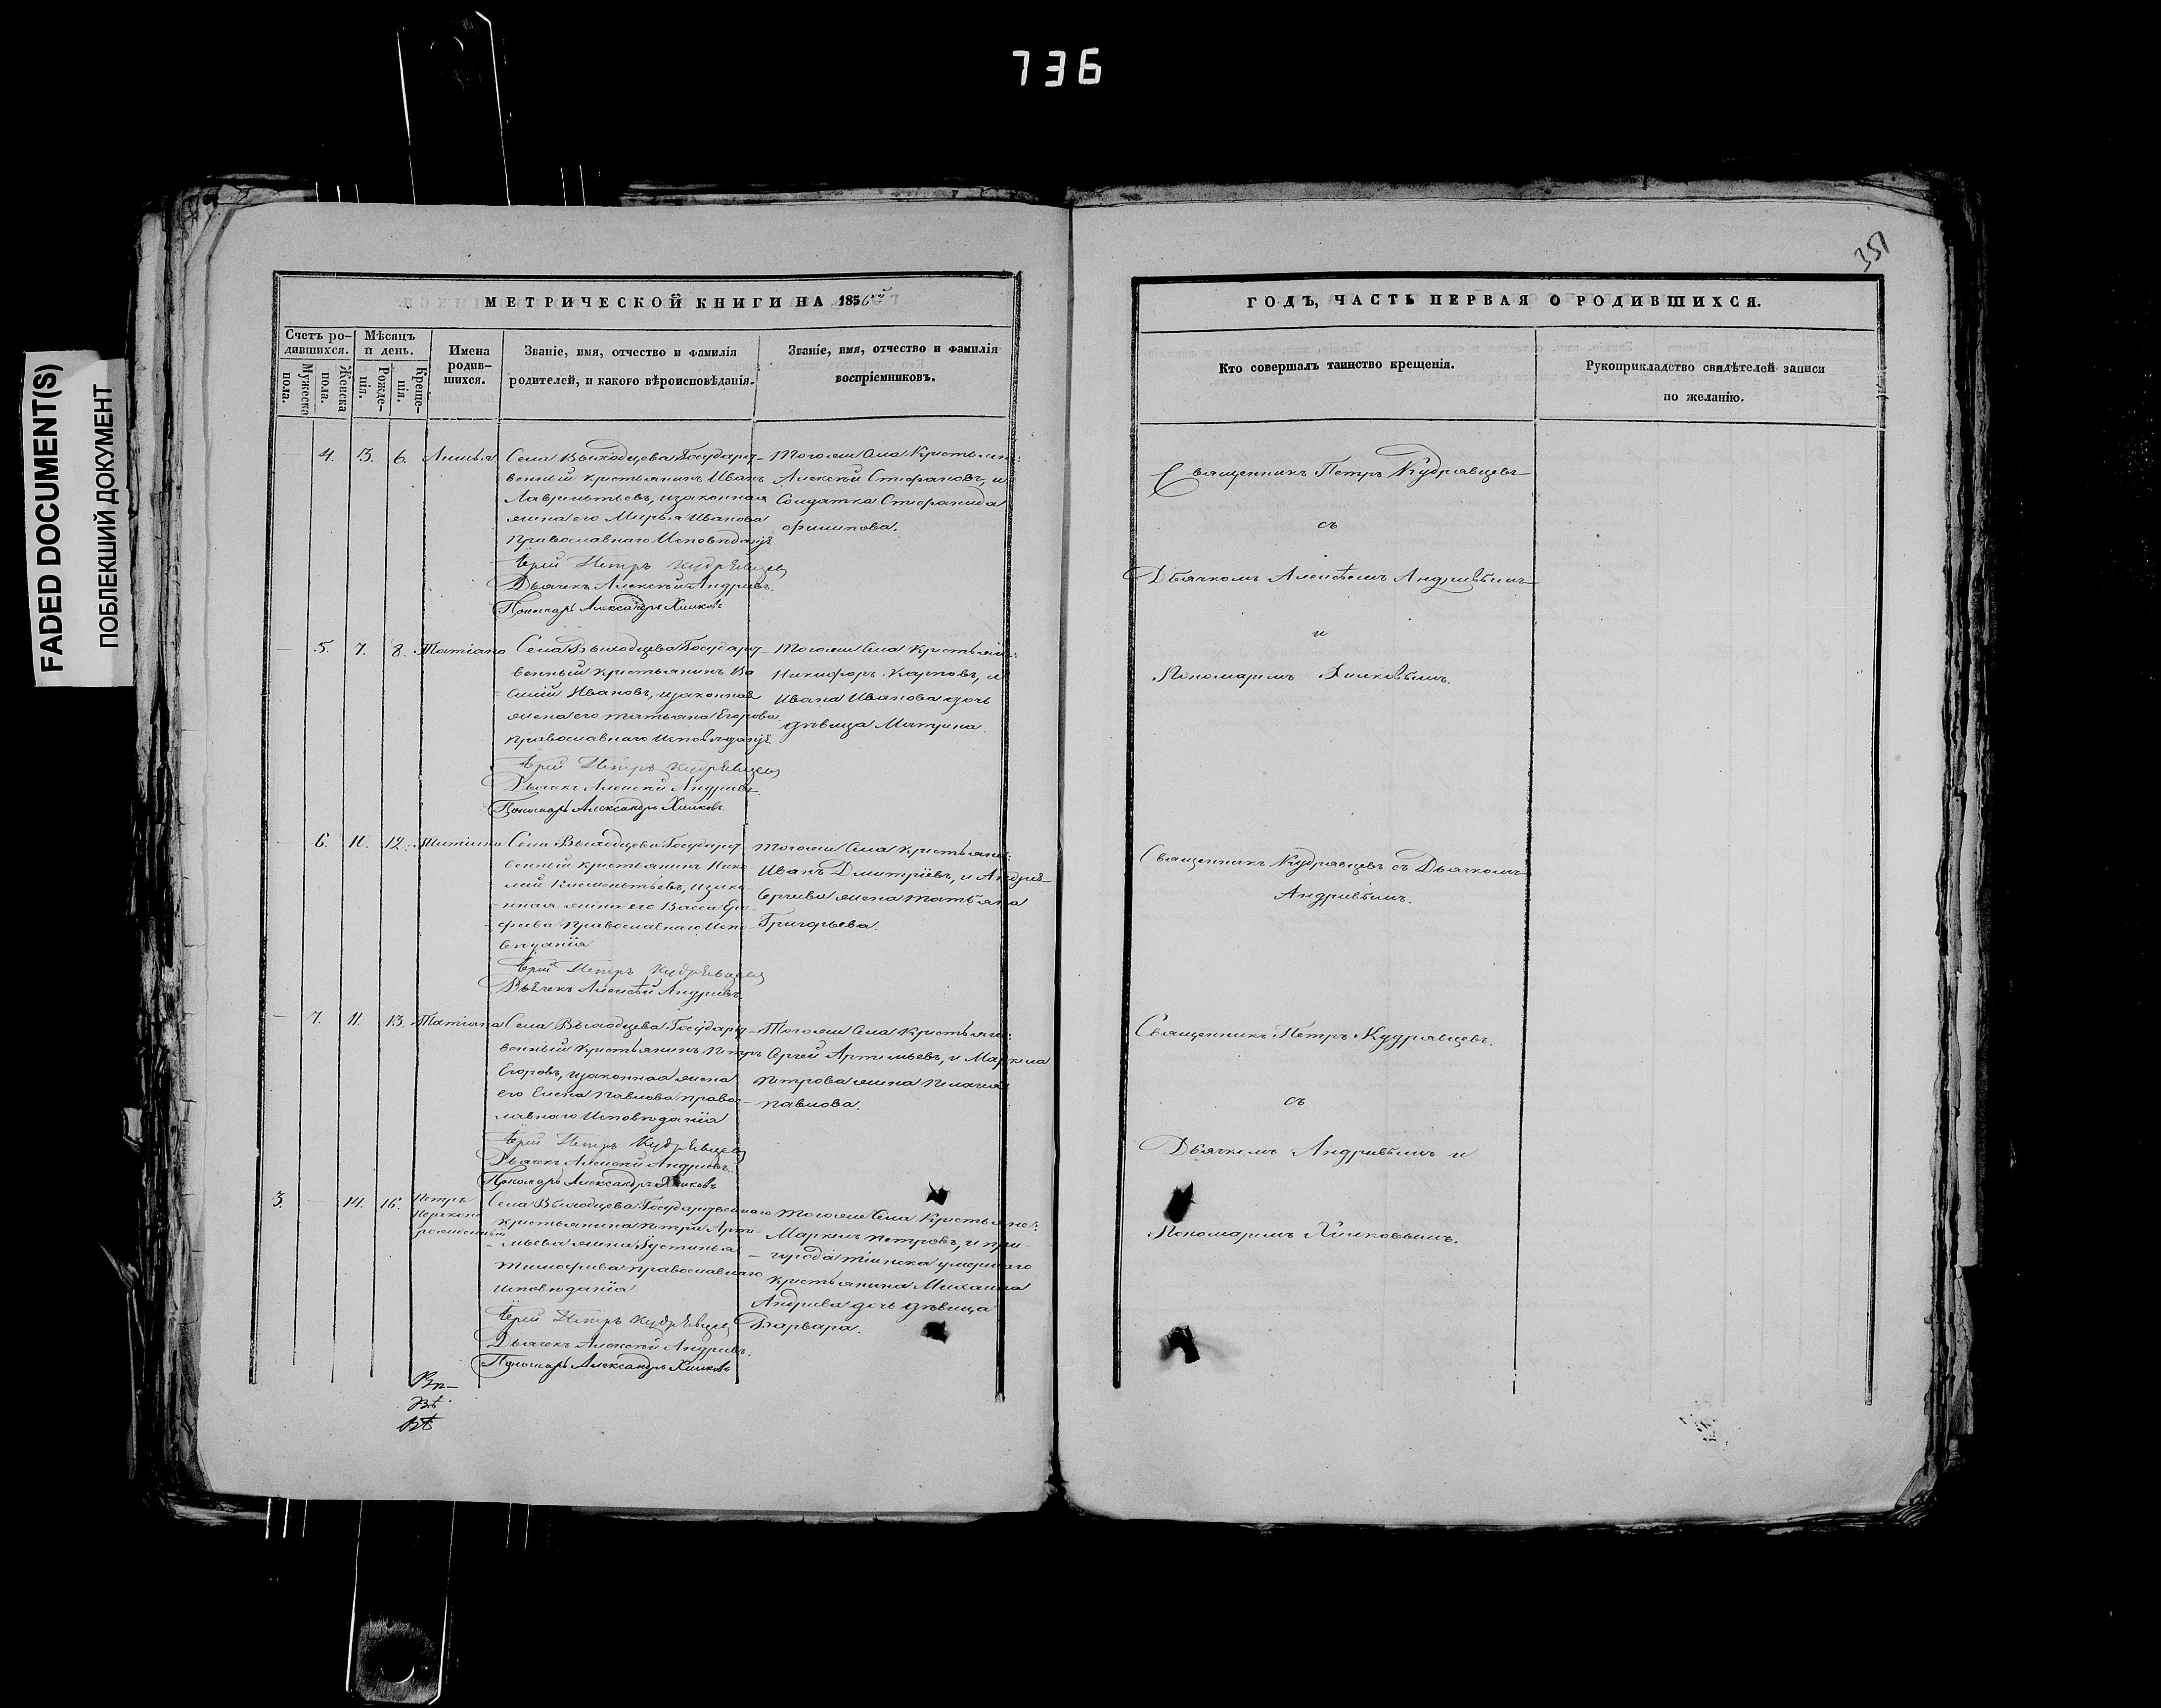 736
FADED DOCUMENT(S)
ПОБЛЕКШИЙ ДОКУМЕНТ
351
МЕТРИЧЕСКОЙ КНИГИ НА 1856й
Счетъ ро-
дившихся.
Мужеска
пола.
Женска
пола.
Мѣсяцъ
и день.
Рожде-
нія.
Креще-
нія.
Имена
родив-
шихся.
Званіе, имя, отчество и фамилія
родителей, и какого вѣроисповѣданія.
Званіе, имя, отчество и фамилія
воспріемниковъ.
4. 3. 6.
Села Выходцева Государст-
венный крестьянинъ Иванъ
Лаврентьевъ, и законная
жена его Марья Иванова
православнаго Исповѣданія
Іерей Петръ Кудрявцевъ
Дьячекъ Алексѣй Андреевъ.
Пономарь Александръ Хилковъ
Тогоже Села Крестьяне:
Алексѣй Стефановъ, и
Солдатка Стефанида
Филипова.
5. 7. 8. Татіана
Села Выходцева Государст-
венный крестьянинъ Ва
силій Ивановъ, и законная
жена его Татьяна Егорова
православнаго Исповѣданія
Іерей Петръ Кудрявцевъ
Дьячекъ Алексѣй Андреевъ.
Пономарь Александръ Хилковъ
Тогоже Села Крестьяне:
Никифоръ Карповъ, и
Ивана Иванова дочь
дѣвица Матрина.
6. 10. 12. Татіана
Села Выходцева Государст
венный крестьянинъ Нико
лай Климентьевъ, и зако
нная жена его Васса Ер
фева православнаго Испо
вѣданія
Іерей Петръ Кудрявцевъ
Дьячекъ Алексѣй Андреевъ.
Тогоже Села Крестьяне:
Иванъ Дмитріевъ, и Андрея
Сергѣева жена Татьяна
Григорьева.
7. 11. 13. Татіана
Села Выходцева Государст-
венный крестьянинъ Петръ
Егоровъ, и законная жена
его Елена Павлова право-
славнаго Исповѣданія
Іерей Петръ Кудрявцевъ
Дьячекъ Алексѣй Андреевъ.
Пономарь Александръ Хилковъ
Тогоже Села Крестьяне:
Сергей Артемьевъ, и Маркела
Петрова жена Пелагия
Павлова.
3. 14. 16. Петръ
Незаконо
рожденный
Села Выходцева Государственнаго
крестьянина Петра Арте-
мьева жена Устинья
Тимофеева православнаго
Исповѣданія
Іерей Петръ Кудрявцевъ
Дьячекъ Алексѣй Андреевъ.
Пономарь Александръ Хилковъ
Тогоже Села Крестьяне:
Маркелъ Петровъ, и при-
города Тіинска умершаго
крестьянина Михаила
Андреева дочь дѣвица
Варвара.
ГОДЪ, ЧАСТЬ ПЕРВАЯ О РОДИВШИХСЯ.
Кто совершалъ таинство крещенія.
Рукоприкладство свидѣтелей записи
по желанію.
Священникъ Петръ Кудрявцевъ
съ
Дьячкомъ Алексѣемъ Андреевымъ
и
Пономаремъ Хилковымъ.
Священникъ Кудрявцевъ съ Дьячкомъ
Андреевымъ.
Священникъ Петръ Кудрявцевъ.
съ
Дьячкомъ Андреевымъ и
Пономаремъ Хилковымъ.